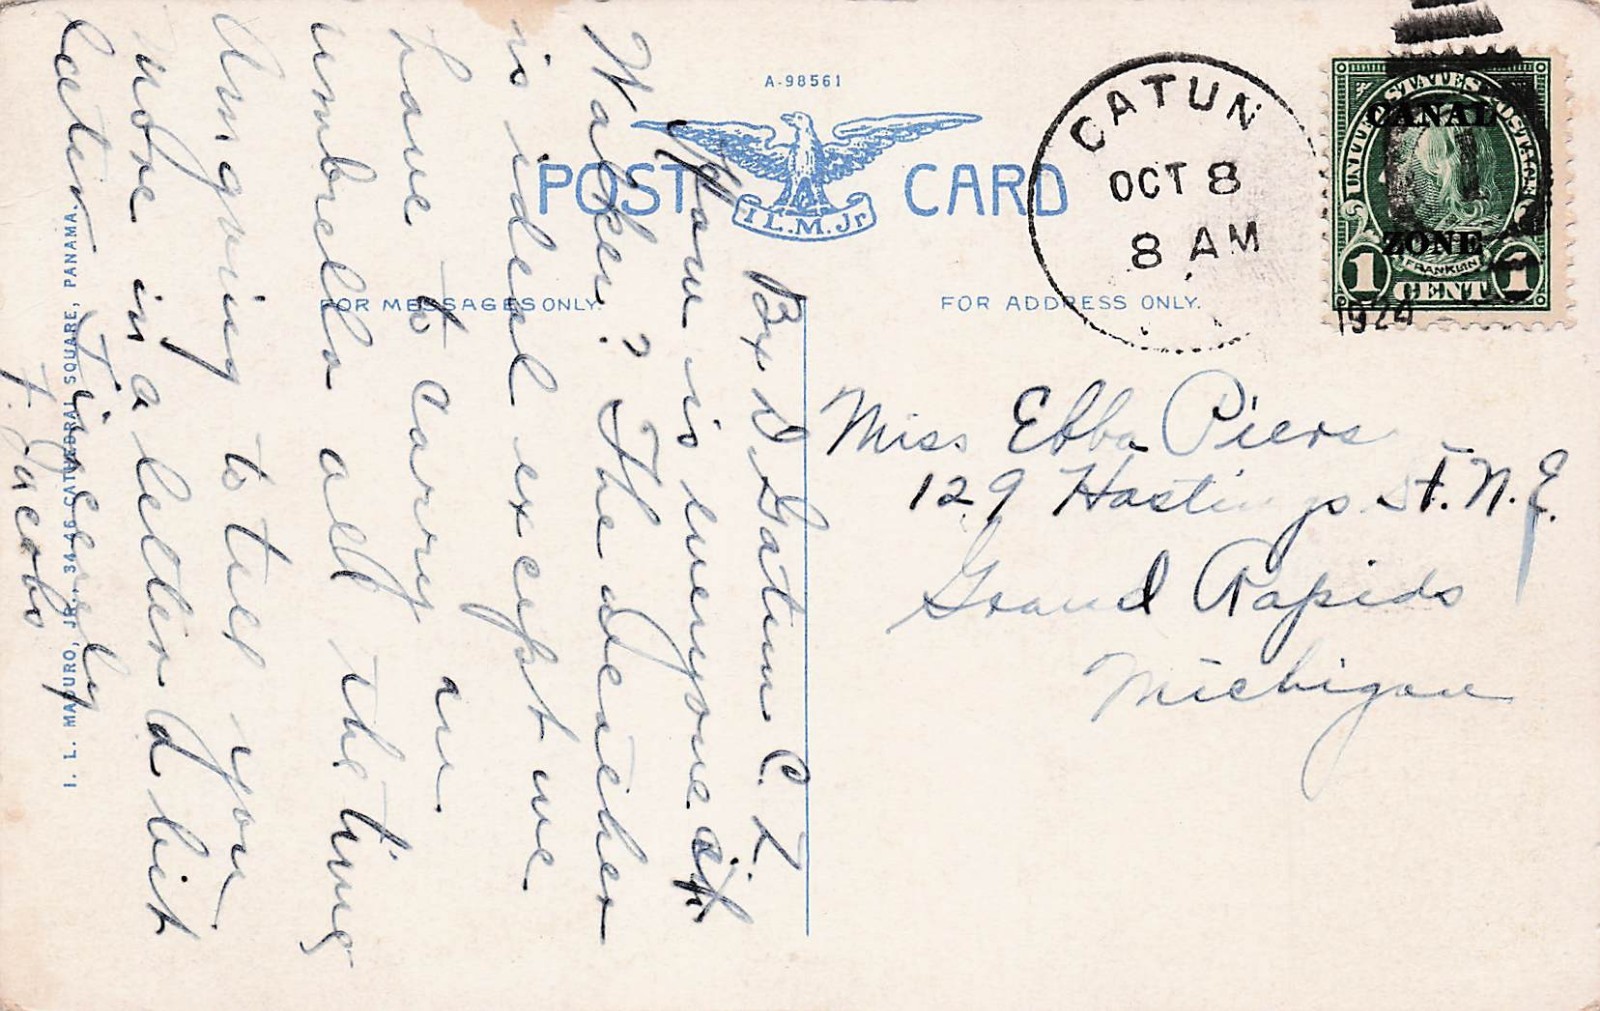 A-98561
POST CARD
I.L.M. Jr.
FOR MESSAGES ONLY.
FOR ADDRESS ONLY.
CATUN
OCT 8
8 AM
1924
UNITED STATES POSTAGE
CANAL
ZONE
FRANKLIN
1 CENT 1
Miss Ebba Piers
129 Hastings St. N.E.
Grand Rapids
Michigan
Box D Gatun C.Z.
How is everyone at
Walker? The weather
is ideal except we
have to carry an
umbrella all the time
Am going to tell you
more in a letter a bit
later. Sincerely
F. Jacobs
I. L. MADURO, JR., 34-46 CATHEDRAL SQUARE, PANAMA.